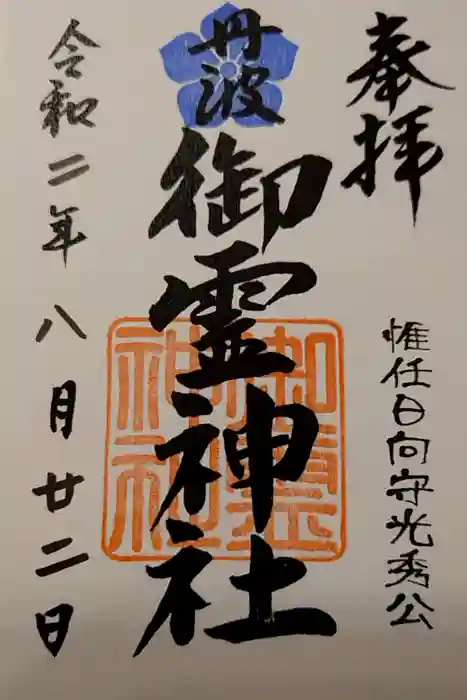 奉拝
惟任日向守光秀公
丹波
御霊神社
御霊神社
令和二年八月廿二日